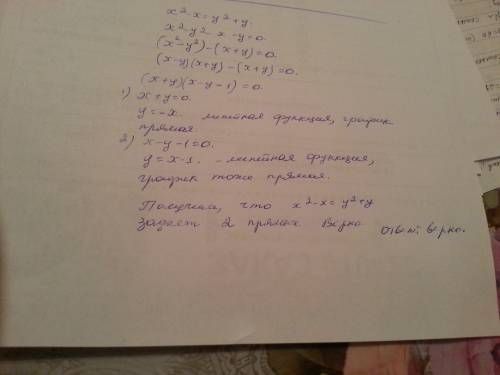 x²-x=y²+y.
x²-y²-x-y=0.
(x²-y²)-(x+y)=0.
(x-y)(x+y)-(x+y)=0.
(x+y)(x-y-1)=0.
1) x+y=0.
y=-x. линейная функция, график
прямая.
2) x-y-1=0.
y=x-1. - линейная функция,
график тоже прямая.
Получим, что x²-x=y²+y
задает 2 прямых Верно ответ: верно.